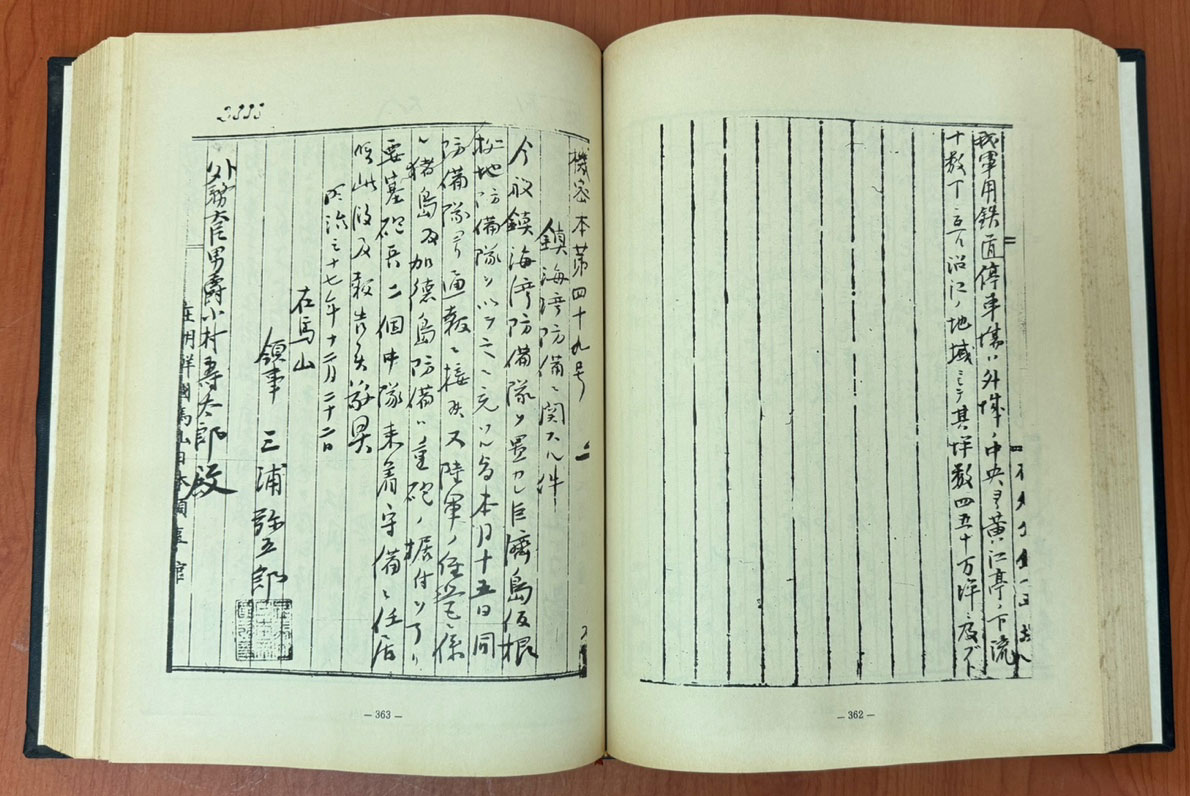 我軍用鉄道停車場ハ外城ノ中央ヨリ黄江亭ノ下流
十数丁ニ亘ル沿江ノ地域ニシテ其坪数四五十万坪ニ及ブト
— 362 —
機密本第四十九号
鎮海湾防備ニ関スル件
今般鎮海湾防備隊ヲ置カレ巨済島仮根
拠地防備隊ヲ以テ之ニ充ツル旨本月十五日同
防備隊ヨリ通報ニ接シ又陸軍ノ経営ニ係
ル猪島及加徳島防備ハ重砲ノ据付ヲ了リ
要塞砲兵二個中隊来着守備ニ任居
候此段及報告候敬具
明治三十七年十二月二十二日
在馬山
領事 三浦弥五郎
外務大臣男爵小村寿太郎殿
在朝鮮國馬山日本領事館
— 363 —